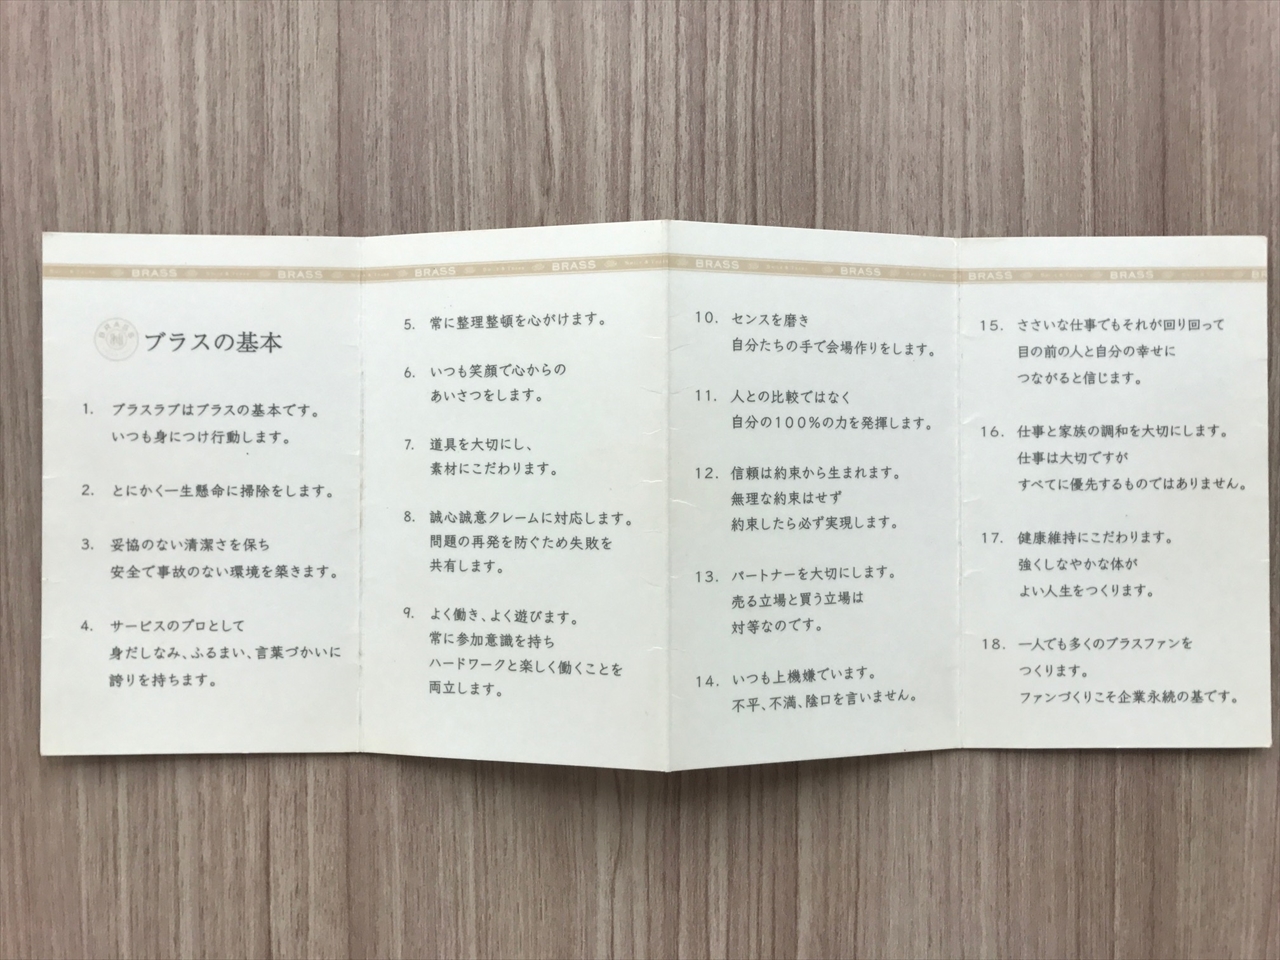 BRASS BRASS BRASS BRASS BRASS BRASS BRASS BRASS
ブラスの基本
1. ブラスラブはブラスの基本です。
いつも身につけ行動します。
2. とにかく一生懸命に掃除をします。
3. 妥協のない清潔さを保ち
安全で事故のない環境を築きます。
4. サービスのプロとして
身だしなみ、ふるまい、言葉づかいに
誇りを持ちます。
5. 常に整理整頓を心がけます。
6. いつも笑顔で心からの
あいさつをします。
7. 道具を大切にし、
素材にこだわります。
8. 誠心誠意クレームに対応します。
問題の再発を防ぐため失敗を
共有します。
9. よく働き、よく遊びます。
常に参加意識を持ち
ハードワークと楽しく働くことを
両立します。
10. センスを磨き
自分たちの手で会場作りをします。
11. 人との比較ではなく
自分の100%の力を発揮します。
12. 信頼は約束から生まれます。
無理な約束はせず
約束したら必ず実現します。
13. パートナーを大切にします。
売る立場と買う立場は
対等なのです。
14. いつも上機嫌でいます。
不平、不満、陰口を言いません。
15. ささいな仕事でもそれが回り回って
目の前の人と自分の幸せに
つながると信じます。
16. 仕事と家族の調和を大切にします。
仕事は大切ですが
すべてに優先するものではありません。
17. 健康維持にこだわります。
強くしなやかな体が
よい人生をつくります。
18. 一人でも多くのブラスファンを
つくります。
ファンづくりこそ企業永続の基です。